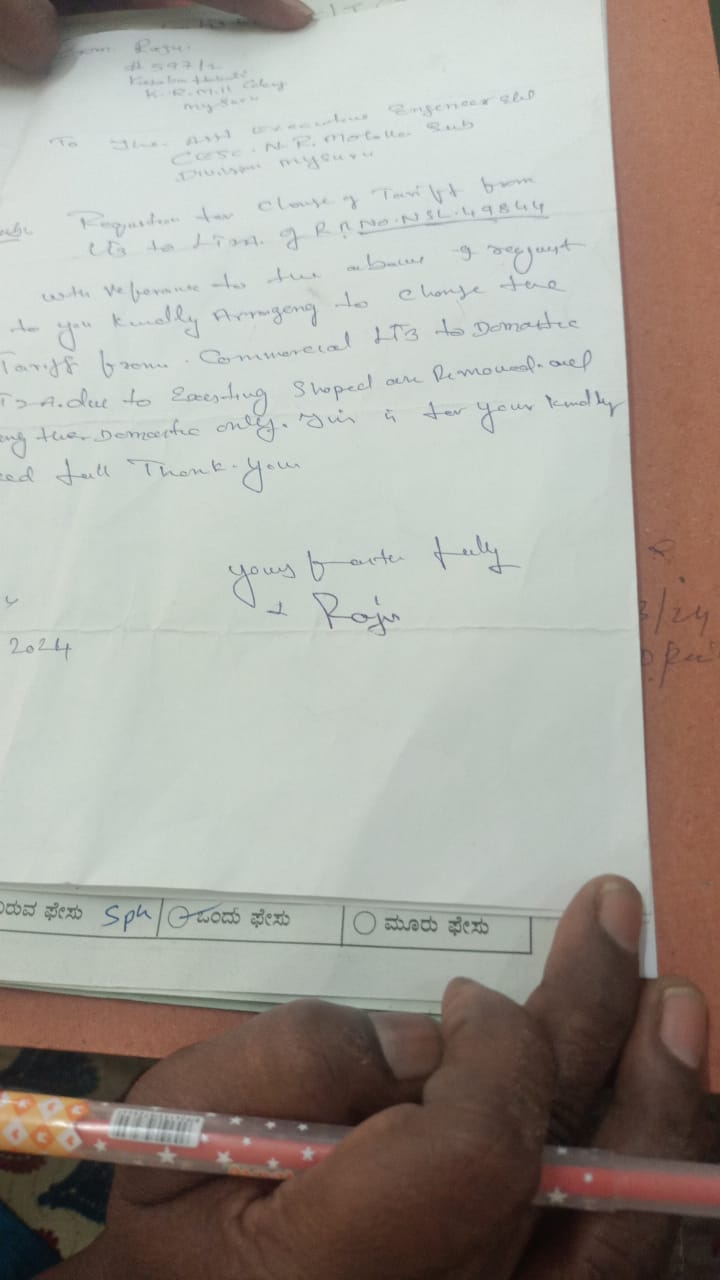 From Raju.
# 597/2
K.R.Mill Coloney
Mysuru
To The Asst Executive Engeneer Ele
CESC. N.R. Mohalla Sub
Division Mysuru
Requstion for Change of Tariff from
LT3 to of RR No. NSL.49844
with referance to the above g request
to you kindly Arrangeng to change the
Tariff from Commercial LT3 to Domastic
due to Exesting Shoped are Removed. and
ther Domastic only. This is for your kindly
full Thank. you
yours faithe fully
Raju
2024
3/24
ಫೇಸು Sph ಒಂದು ಫೇಸು ಮೂರು ಫೇಸು